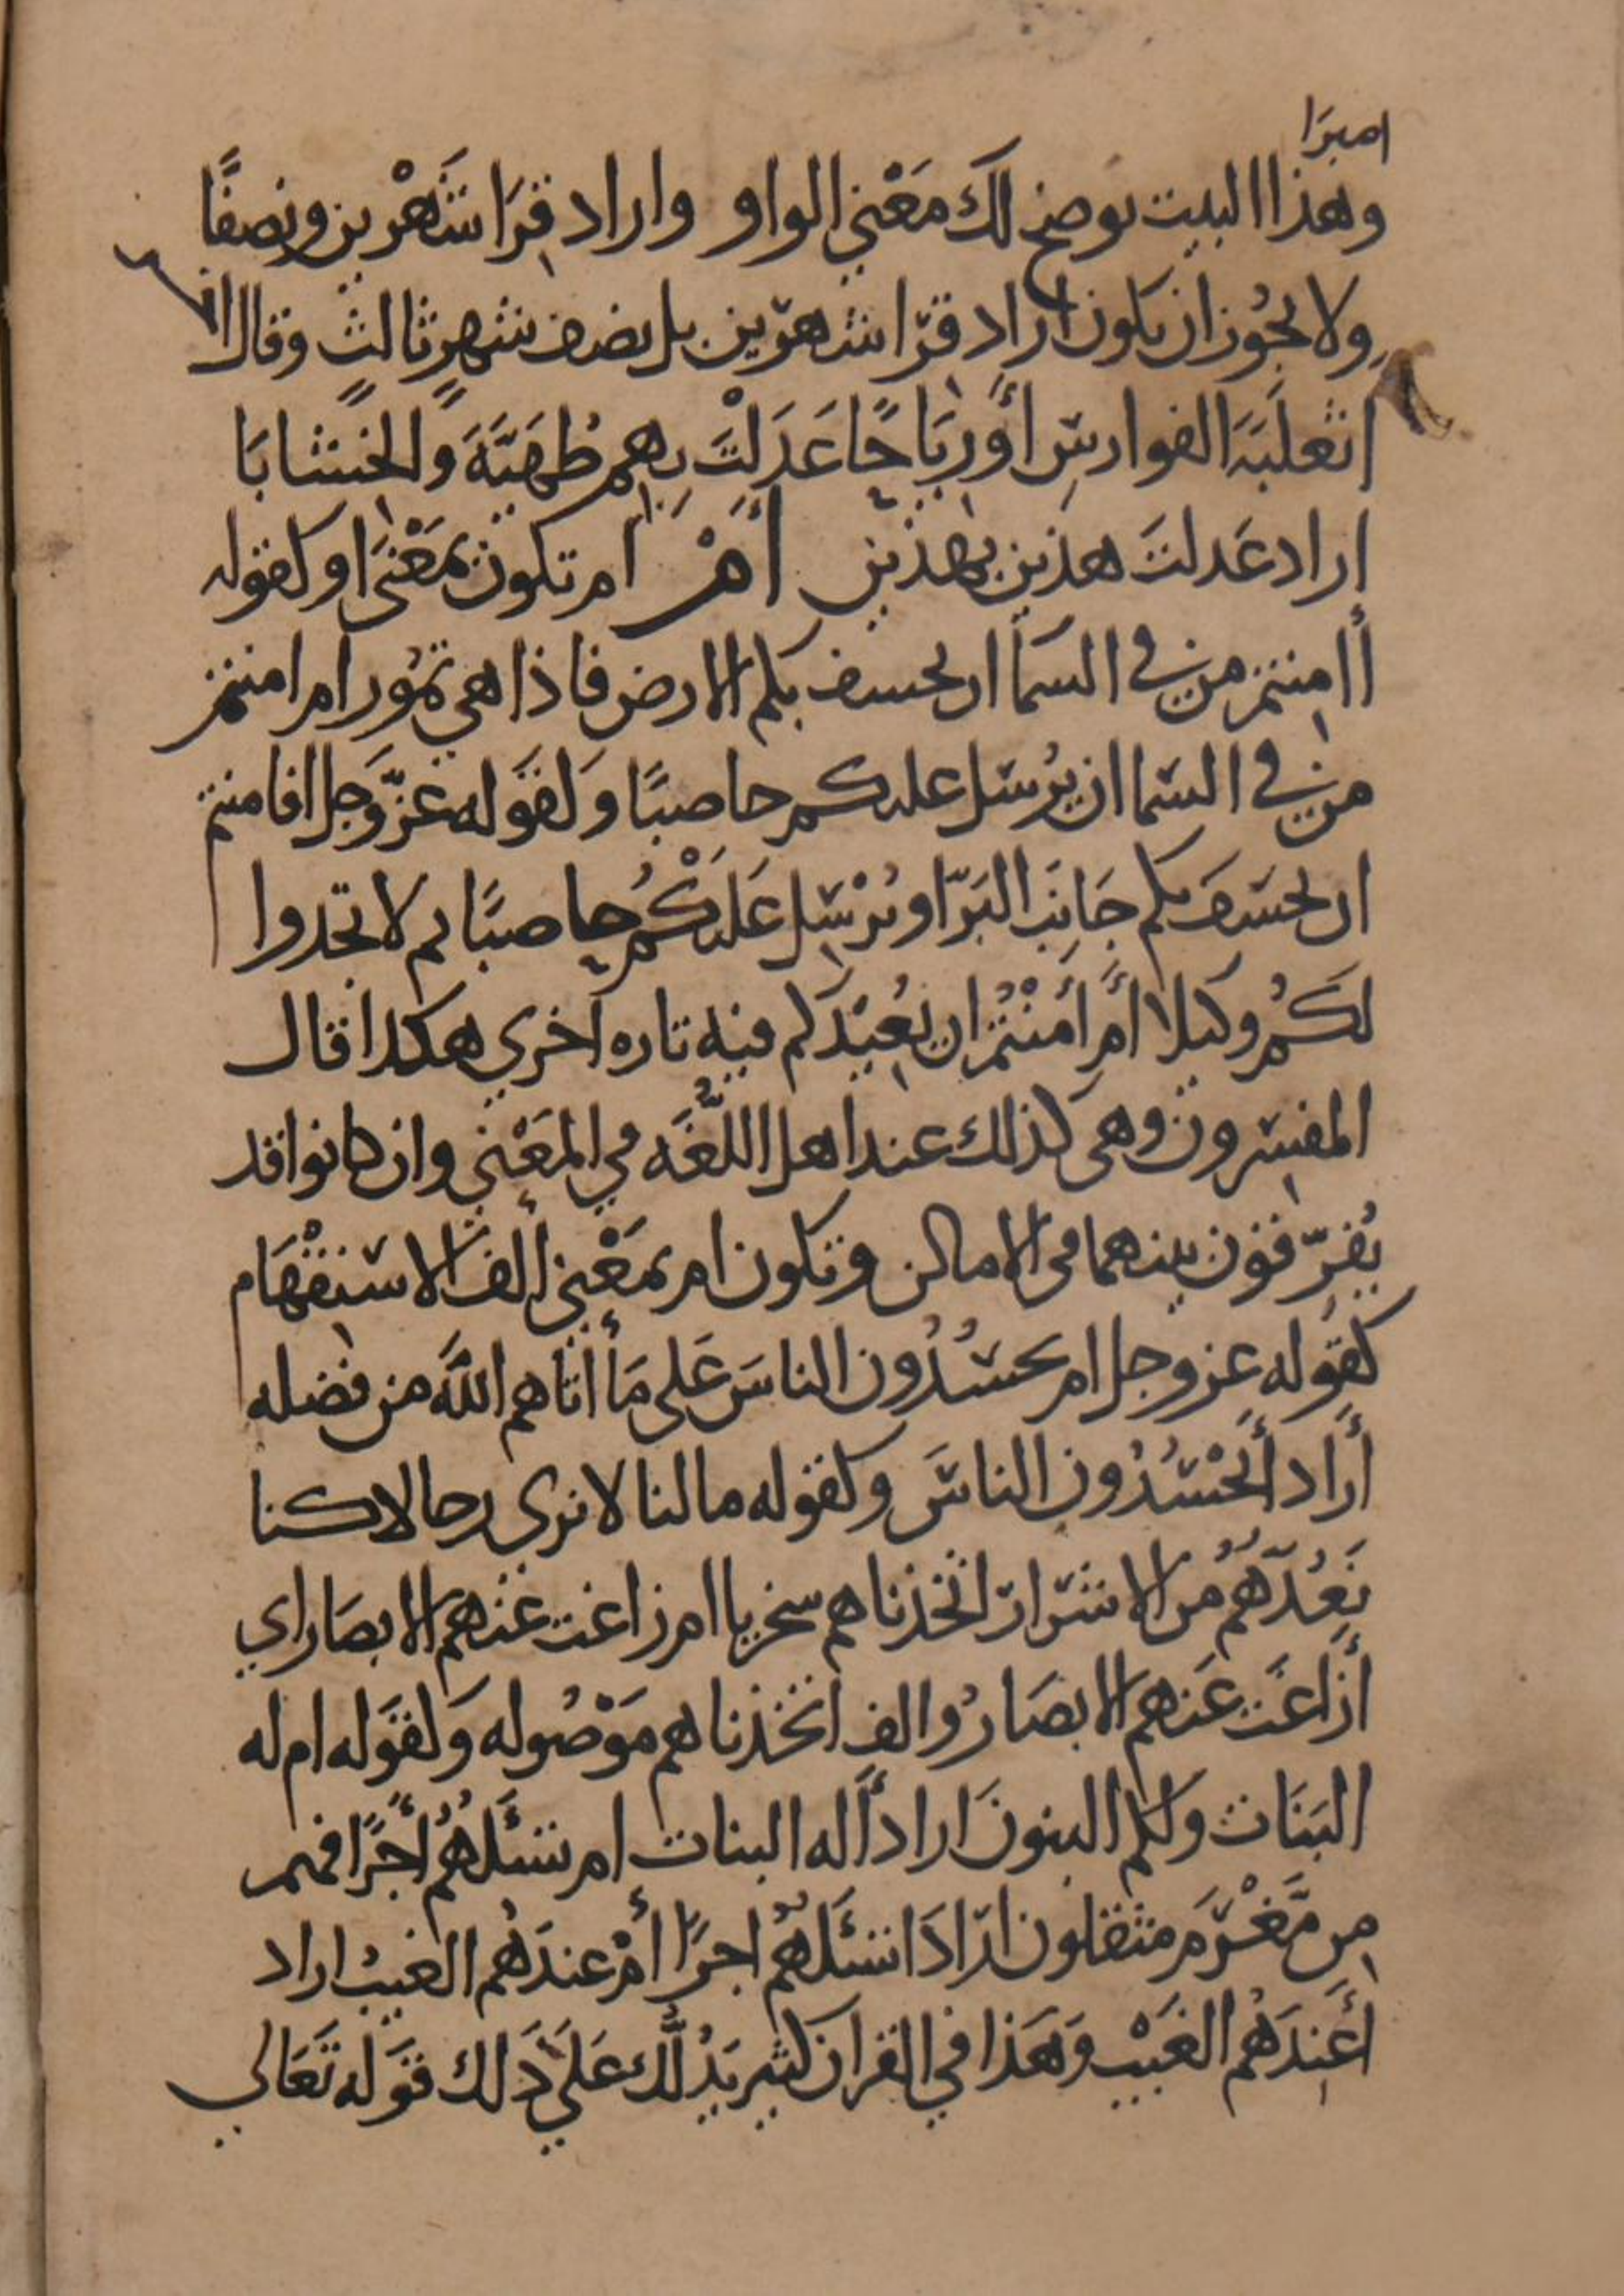 اميرا
وهذا البيت يوضح لك معني الواو واراد قرا شهرين ونصفا
ولا يجوز ان يكون اراد قرا شهرين بل نصف شهر ثالث وقال اخر
اثعلبة الفوارس أو رياحا عدلت بهم طهية والخشابا
اراد عدلت هذين بهذين أم ام تكون بمعنى او كقوله
أامنتم من في السما ان يخسف بكم الارض فاذا هي تمور ام امنتم
من في السما ان يرسل عليكم حاصبا وكقوله عز وجل افامنتم
ان يخسف بكم جانب البر او يرسل عليكم حاصبا ثم لا تجدوا
لكم وكيلا أم أمنتم ان يعيدكم فيه تاره أخري هكذا قال
المفسرون وهي كذلك عند اهل اللغه في المعني وان كانوا قد
يفرقون بينهما في الاماكن وتكون ام بمعني ألف الاستفهام
كقوله عز وجل ام يحسدون الناس علي ما أتاهم الله من فضله
أراد أيحسدون الناس وكقوله مالنا لا نرى رجالا كنا
نعدهم من الاشرار اتخذناهم سخريا ام زاغت عنهم الابصار اي
أزاغت عنهم الابصار والف اتخذناهم موصوله وكقوله ام له
البنات ولكم البنون اراد أله البنات ام تسئلهم أجرا فهم
من مغرم مثقلون اراد اتسئلهم اجرا أم عندهم الغيب اراد
أعندهم الغيب وهذا في القران كثير يدلك علي ذلك قوله تعالي